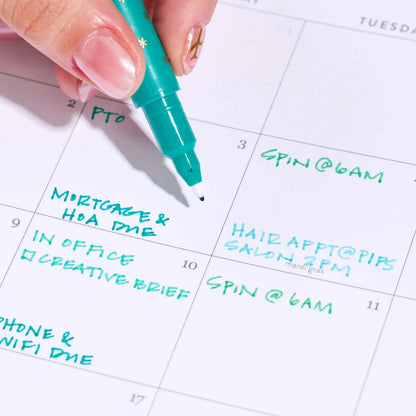 TUESDAY
2
PTO
MORTGAGE &
HOA DUE
3
SPIN @ 6AM
HAIR APPT @ PIPS
SALON 2PM
mardi gras
9
IN OFFICE
☐ CREATIVE BRIEF
PHONE &
WIFI DUE
10
SPIN @ 6AM
11
17